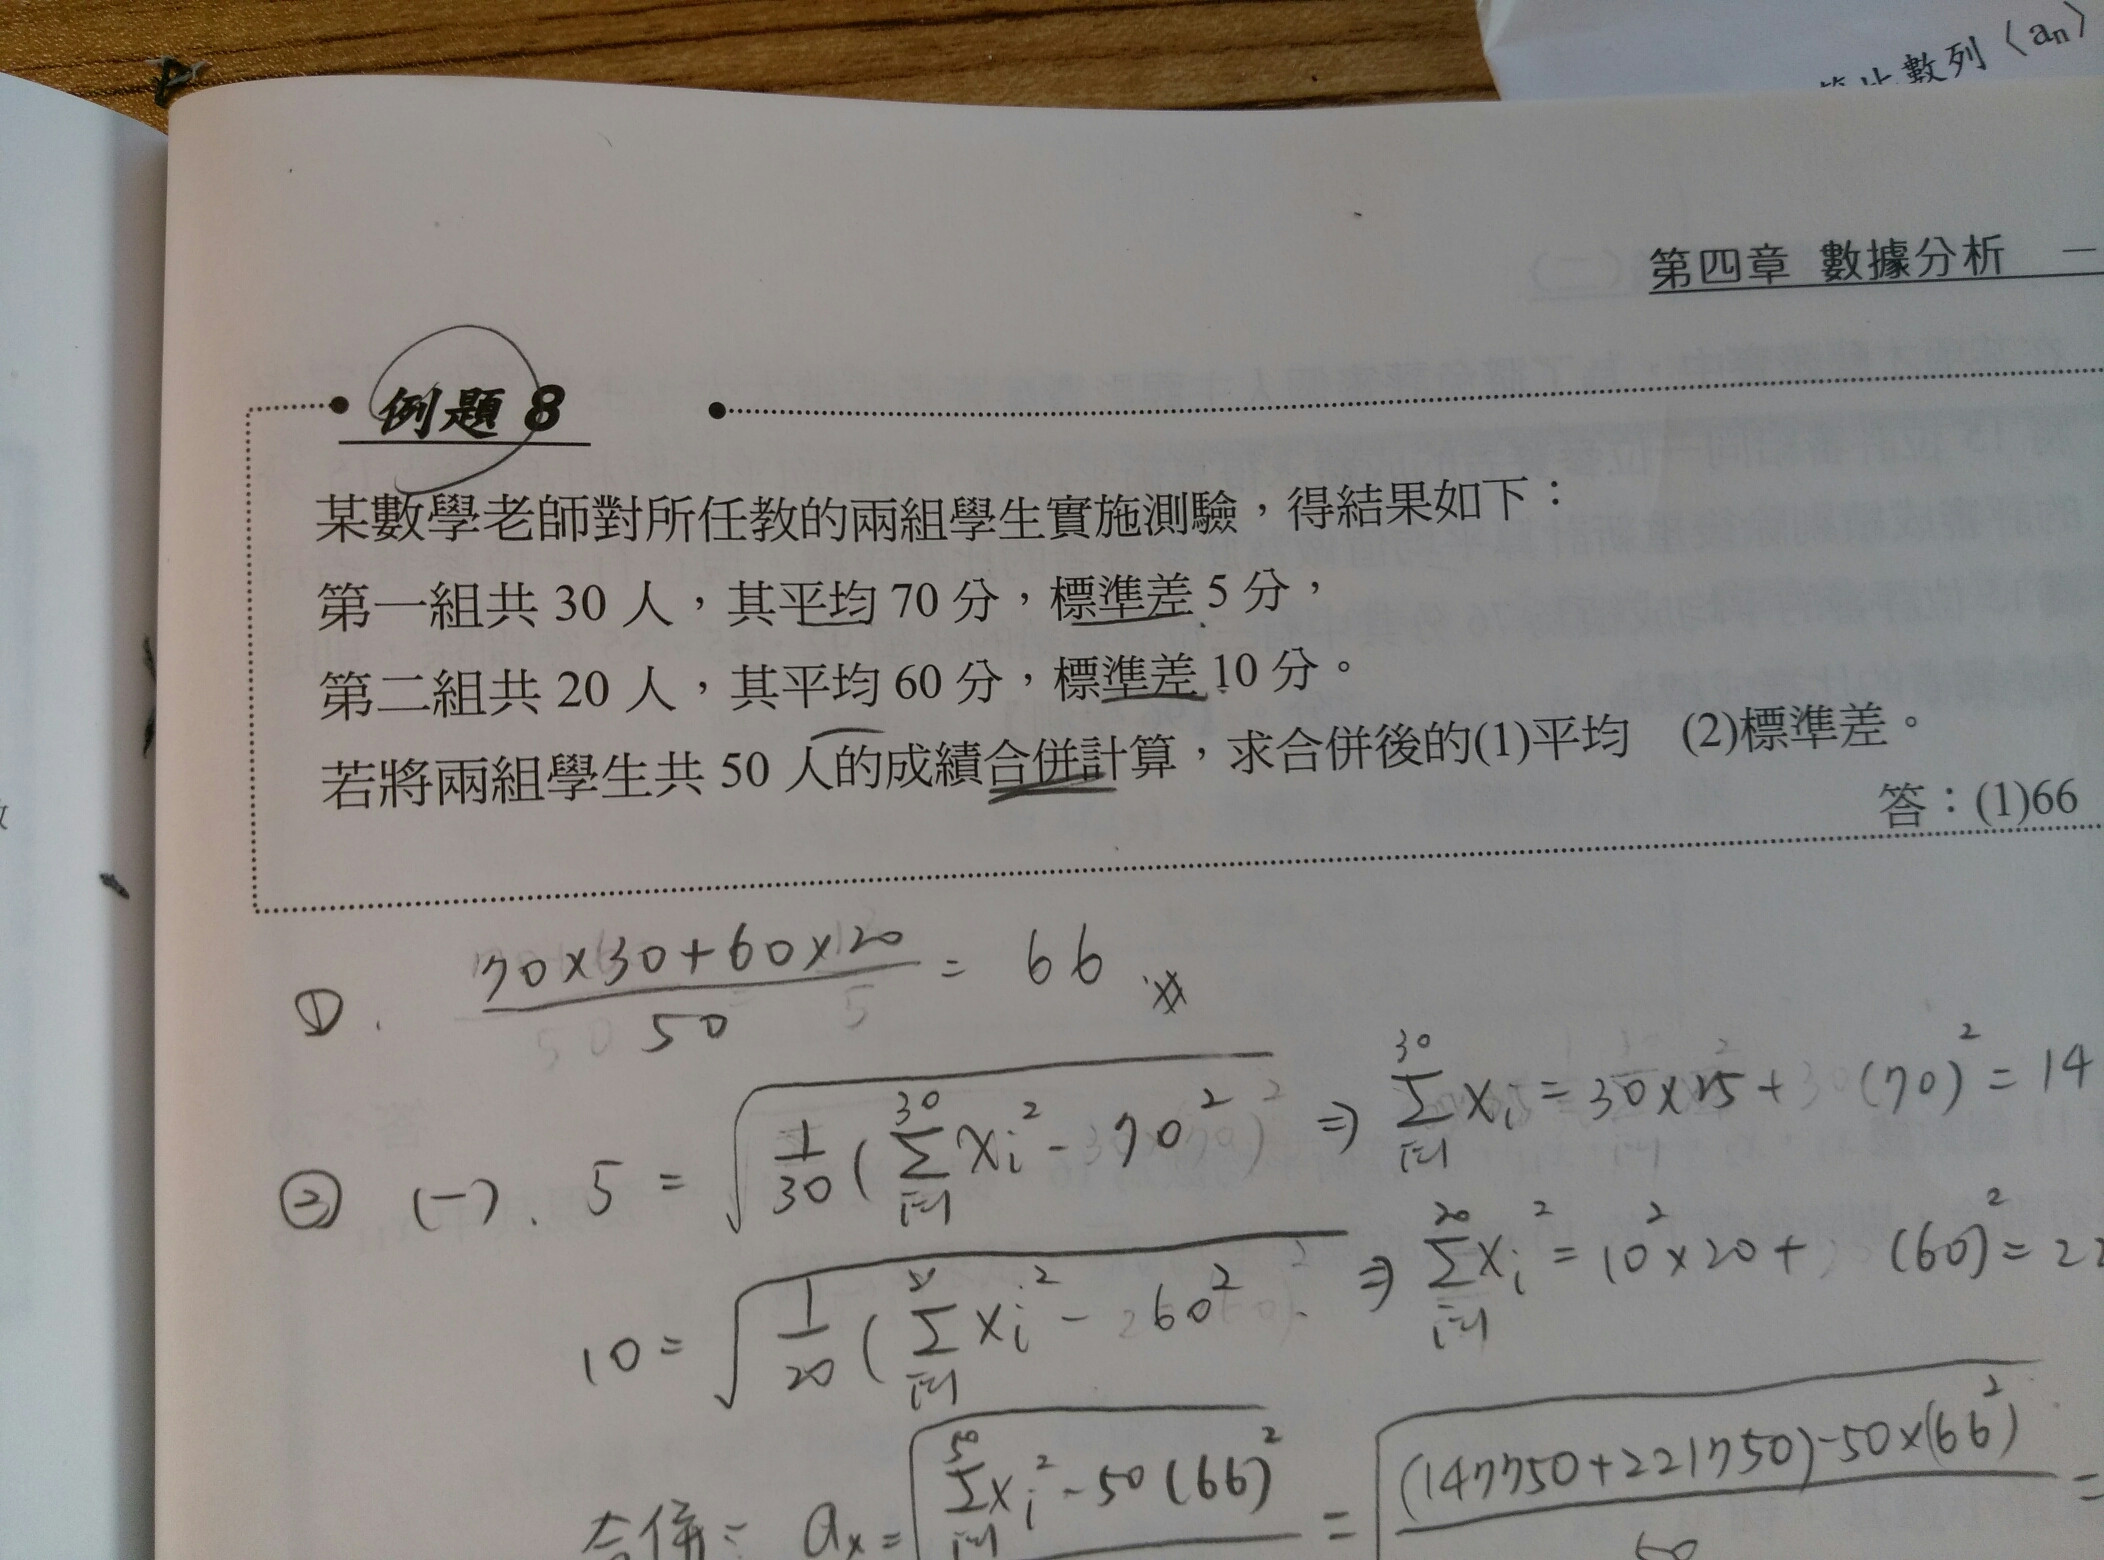 數列〈an〉
第四章 數據分析 一
例題 8
某數學老師對所任教的兩組學生實施測驗，得結果如下：
第一組共 30 人，其平均 70 分，標準差 5 分，
第二組共 20 人，其平均 60 分，標準差 10 分。
若將兩組學生共 50 人的成績合併計算，求合併後的(1)平均 (2)標準差。
答：(1)66
① . (70×30+60×20)/50 = 66
② (一). 5 = √(1/30 (Σ_{i=1}^{30} xi² - 70²)) ⇒ Σ_{i=1}^{30} xi = 30×25+ (70)² = 14
10 = √(1/20 (Σ_{i=1} xi² - 60²)) ⇒ Σ_{i=1}^{20} xi² = 10²×20+ (60)² = 22
合併: ax = √(Σ_{i=1}^{50} xi² - 50(66)²) = √((147750+221750)-50×(66²)/50) =